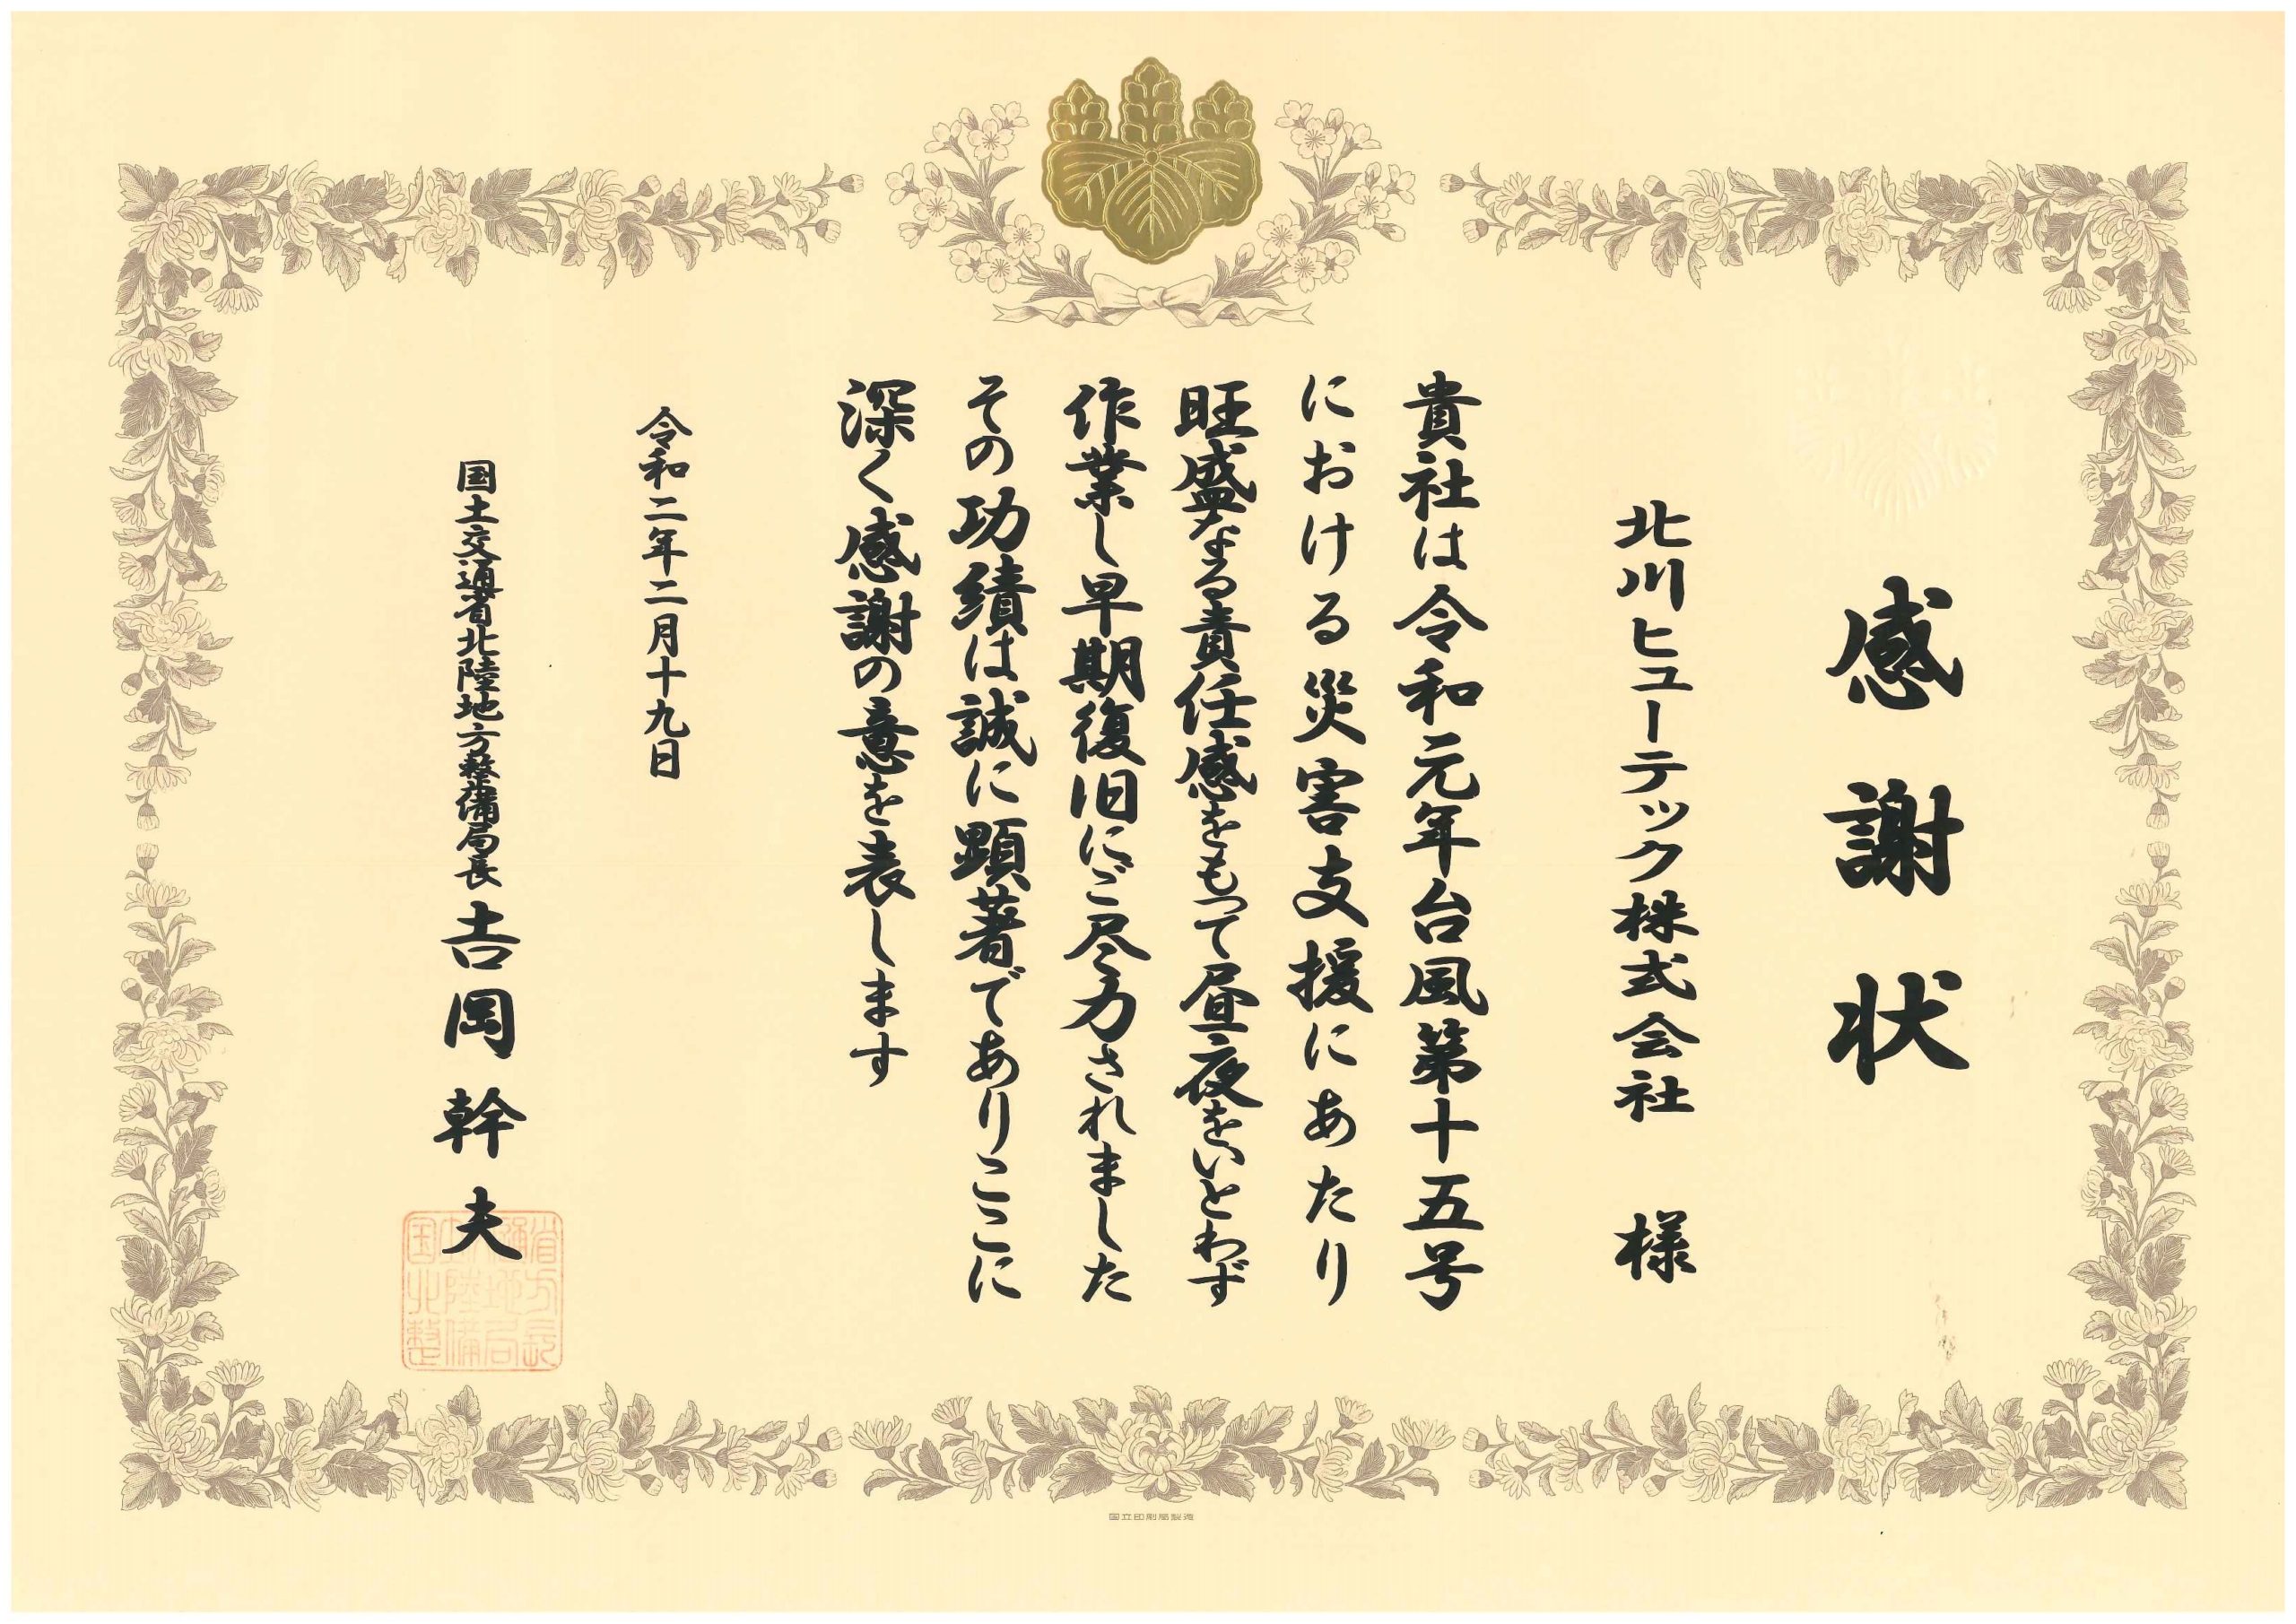 感謝状
北川ヒューテック株式会社　様
貴社は令和元年台風第十五号
における災害支援にあたり
旺盛なる責任感をもって昼夜をいとわず
作業し早期復旧にご尽力されました
その功績は誠に顕著でありここに
深く感謝の意を表します
令和二年二月十九日
国土交通省北陸地方整備局長 吉岡幹夫
国立印刷局製造